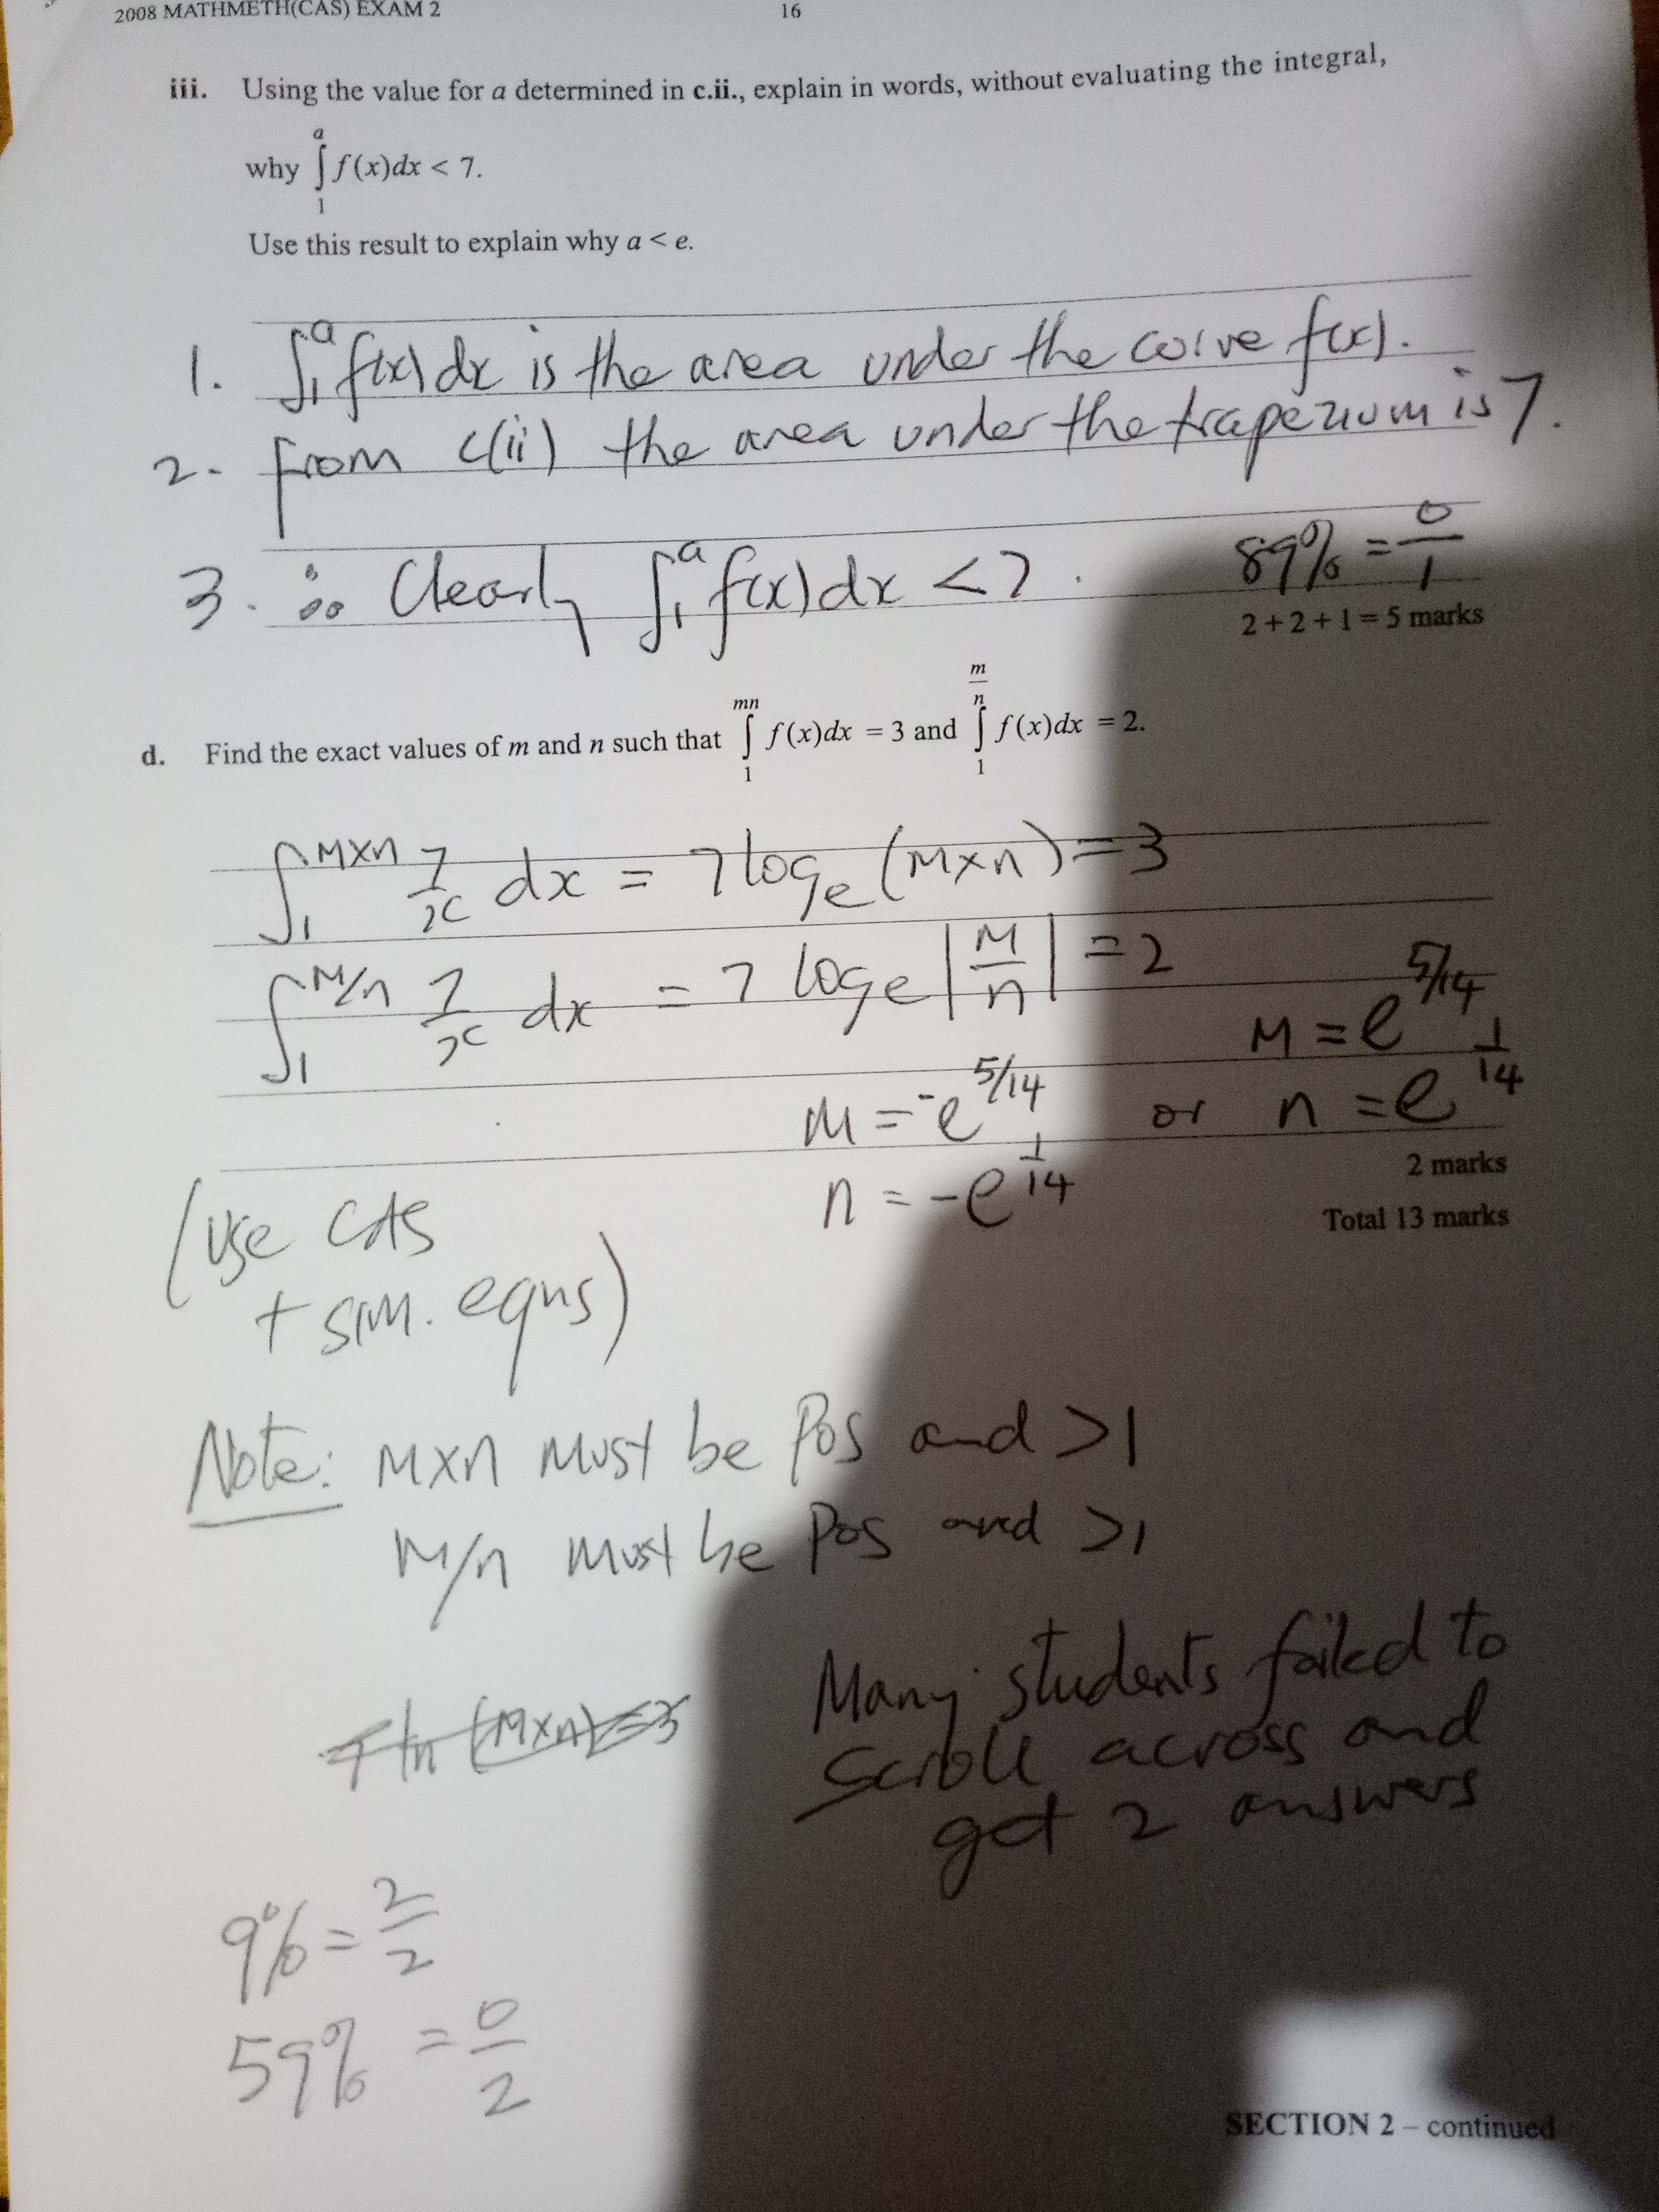 2008 MATHMETH(CAS) EXAM 2 16
iii. Using the value for a determined in c.ii., explain in words, without evaluating the integral,
why ∫₁ᵃ f(x)dx < 7.
Use this result to explain why a < e.
1. ∫₁ᵃ f(x) dx is the area under the curve f(x).
2. From c(ii) the area under the trapezium is 7.
3. ∴ Clearly ∫₁ᵃ f(x) dx < 7.
89% = 0/1
2 + 2 + 1 = 5 marks
d. Find the exact values of m and n such that ∫₁^(mn) f(x)dx = 3 and ∫₁^(m/n) f(x)dx = 2.
∫₁^(M×n) 7/x dx = 7 log_e (M×n) = 3
∫₁^(M/n) 7/x dx = 7 log_e |M/n| = 2
M = -e^(5/14) or M = e^(5/14)
n = -e^(1/14) n = e^(1/14)
2 marks
Total 13 marks
(use CAS
+ sim. eqns)
Note: M×n must be Pos and >1
M/n must be Pos and >1
7 ln (M×n) = 3
Many students failed to
scroll across and
get 2 answers
9% = 2/2
59% = 0/2
SECTION 2 – continued